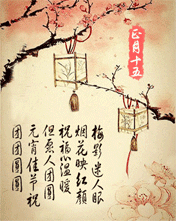 正月十五
梅影迷人眼
烟花映红颜
祝福心温暖
但愿人团圆
元宵佳节祝
团团圆圆